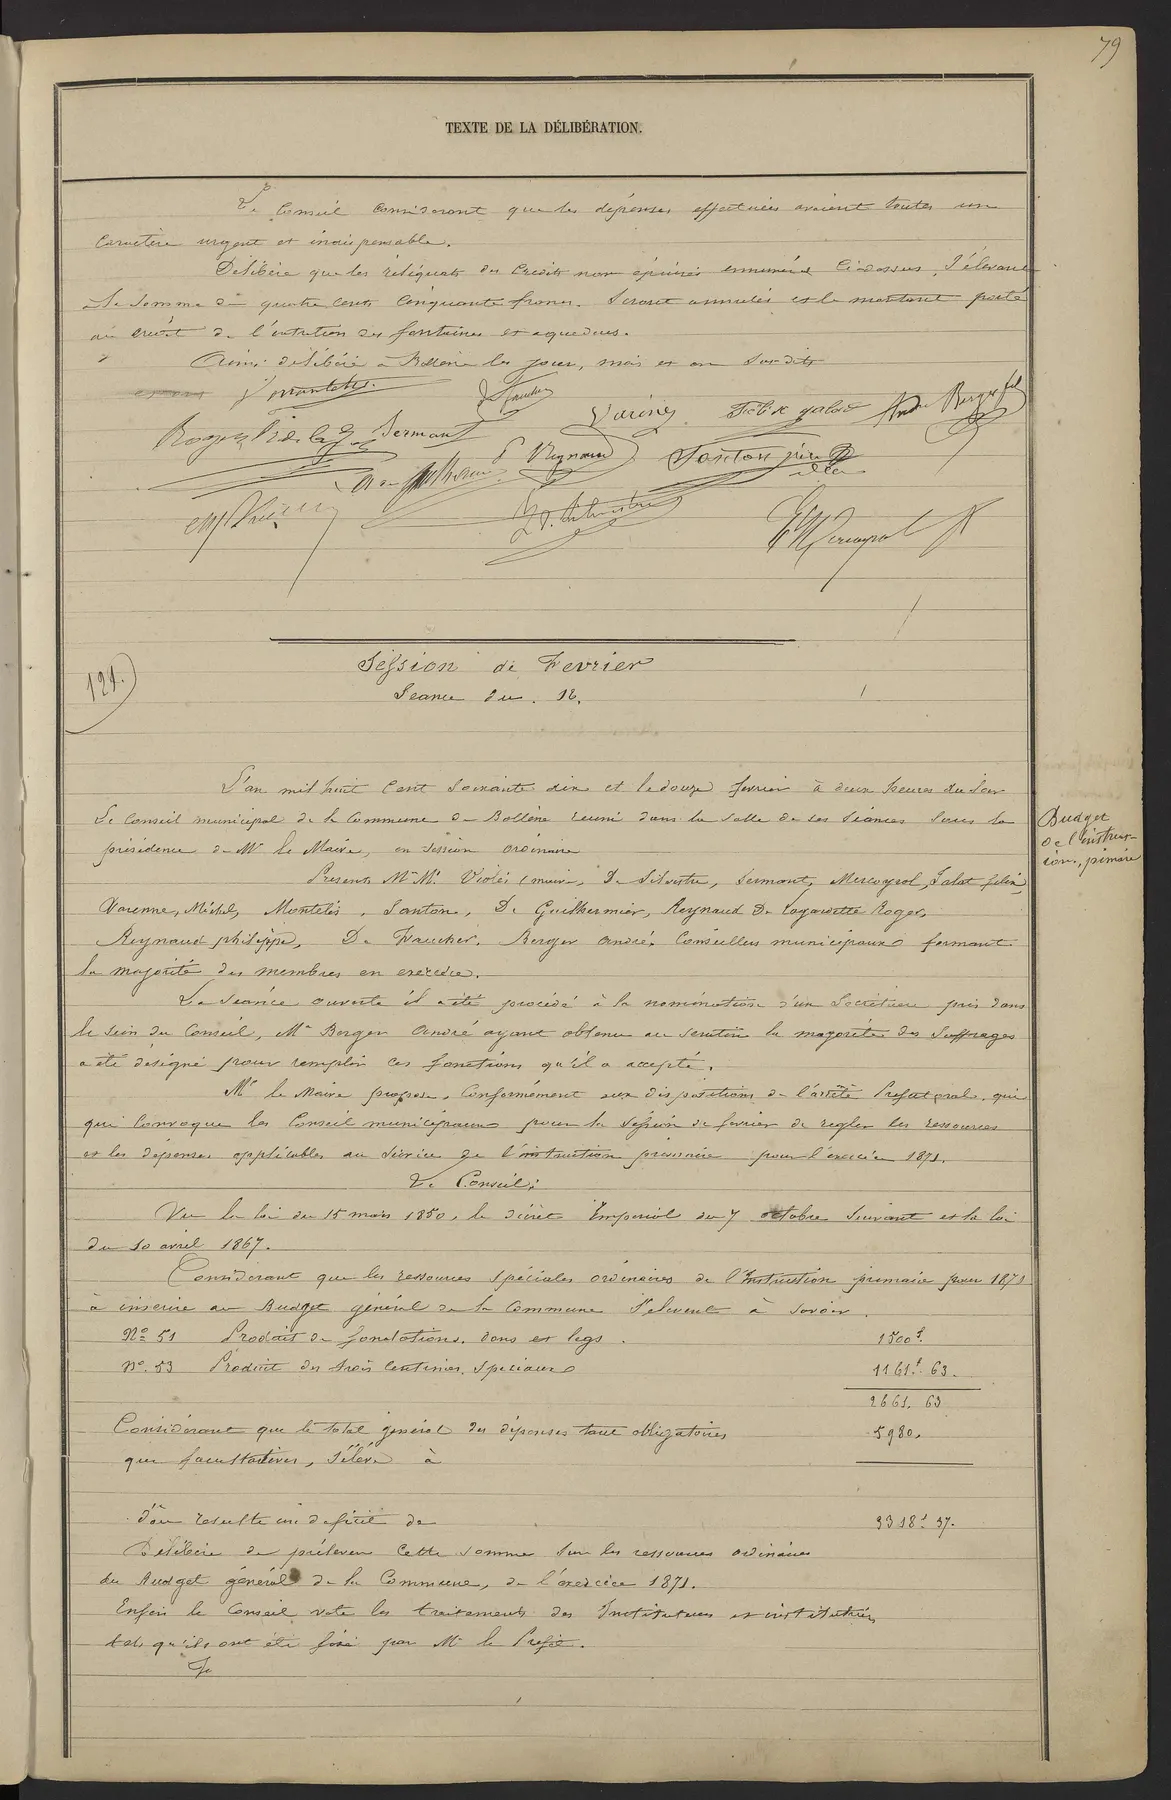 79
TEXTE DE LA DÉLIBÉRATION.
Le Conseil Considerant que les dépenses effectuées avaient toutes un
Caractère urgent et indispensable.
Délibère que les réliquats des Crédits non épuisés enumérés Cidessus, S'élevant
à la Somme de quatre cents Cinquante francs. Seront annulés et le montant porté
au crédit de l'entretien des fontaines et aqueducs.
Ainsi délibéré à Bollène les jour, mois et an Susdits
D Faucher
Varenne Félix Jalat André Berger fils
Roger Sermant
P Reynaud Santon
Session de Fevrier
121.
Seance du. 12.
L'an mil huit Cent Soixante dix et le douze fevrier à deux heures du Soir
Le Conseil municipal de la Commune de Bollène reuni dans la Salle de ses Séances Sous la
présidence de Mr le Maire, en Session Ordinaire
Budget
de l'instruc-
tion, primaire
Présents Mr M. Violès (maire, De Silvestre, Sermant, Mercoyrol, Jalat felix,
Varenne, Michel, Montelès, Santon, De Guilhermier, Reynaud De Lagardette Roger,
Reynaud philippe, De Faucher, Berger André, Conseillers municipaux formant
la majorité des membres en exercice.
La Séance ouverte il a été procédé à la nomination d'un Secrétaire pris dans
le sein du Conseil, Mr Berger André ayant obtenu au scrutin la majorité des Suffrages
a été désigné pour remplir ces fonctions qu'il a accepté.
Mr le Maire propose, Conformément aux dispositions de l'arrêté Prefectoral, qui
qui Convoque les Conseil municipaux pour la Session de fevrier de regler les ressources
et les dépenses applicables au Service de l'instruction primaire pour l'exercice 1871.
Le Conseil;
Vu la loi du 15 mars 1850, le décret Imperial du 7 octobre Suivant et la loi
du 10 avril 1867.
Considerant que les ressources Spéciales ordinaires de l'Instruction primaire pour 1871
à inscrire au Budget général de la Commune S'elevent à Savoir.
No 51 Produit de fondations, dons et legs. 1500f.
No. 53 Produit des trois Centimes, Speciaux 1161f. 63.
2661. 63
Considerant que le total général des dépenses tant obligatoires 5980.
que facultatives, S'élève à
d'ou resulte un deficit de 3318f 37.
Délibère de prélever Cette Somme Sur les ressources ordinaires
du Budget général de la Commune, de l'exercice 1871.
Enfin le Conseil vote les traitements des Instituteurs et institutrices
tels qu'ils ont été fixé par Mr le Prefet.